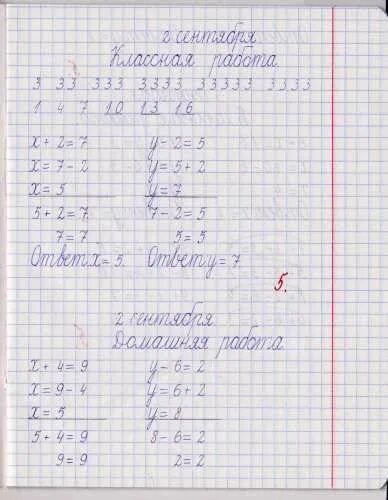 2 сентября
Классная работа
3 33 333 3333 33333 3333
1 4 7 10 13 16
x + 2 = 7 y - 2 = 5
x = 7 - 2 y = 5 + 2
x = 5 y = 7
5 + 2 = 7 7 - 2 = 5
7 = 7 5 = 5
Ответ x = 5. Ответ y = 7
5.
2 сентября.
Домашняя работа
x + 4 = 9 y - 6 = 2
x = 9 - 4 y = 6 + 2
x = 5 y = 8
5 + 4 = 9 8 - 6 = 2
9 = 9 2 = 2